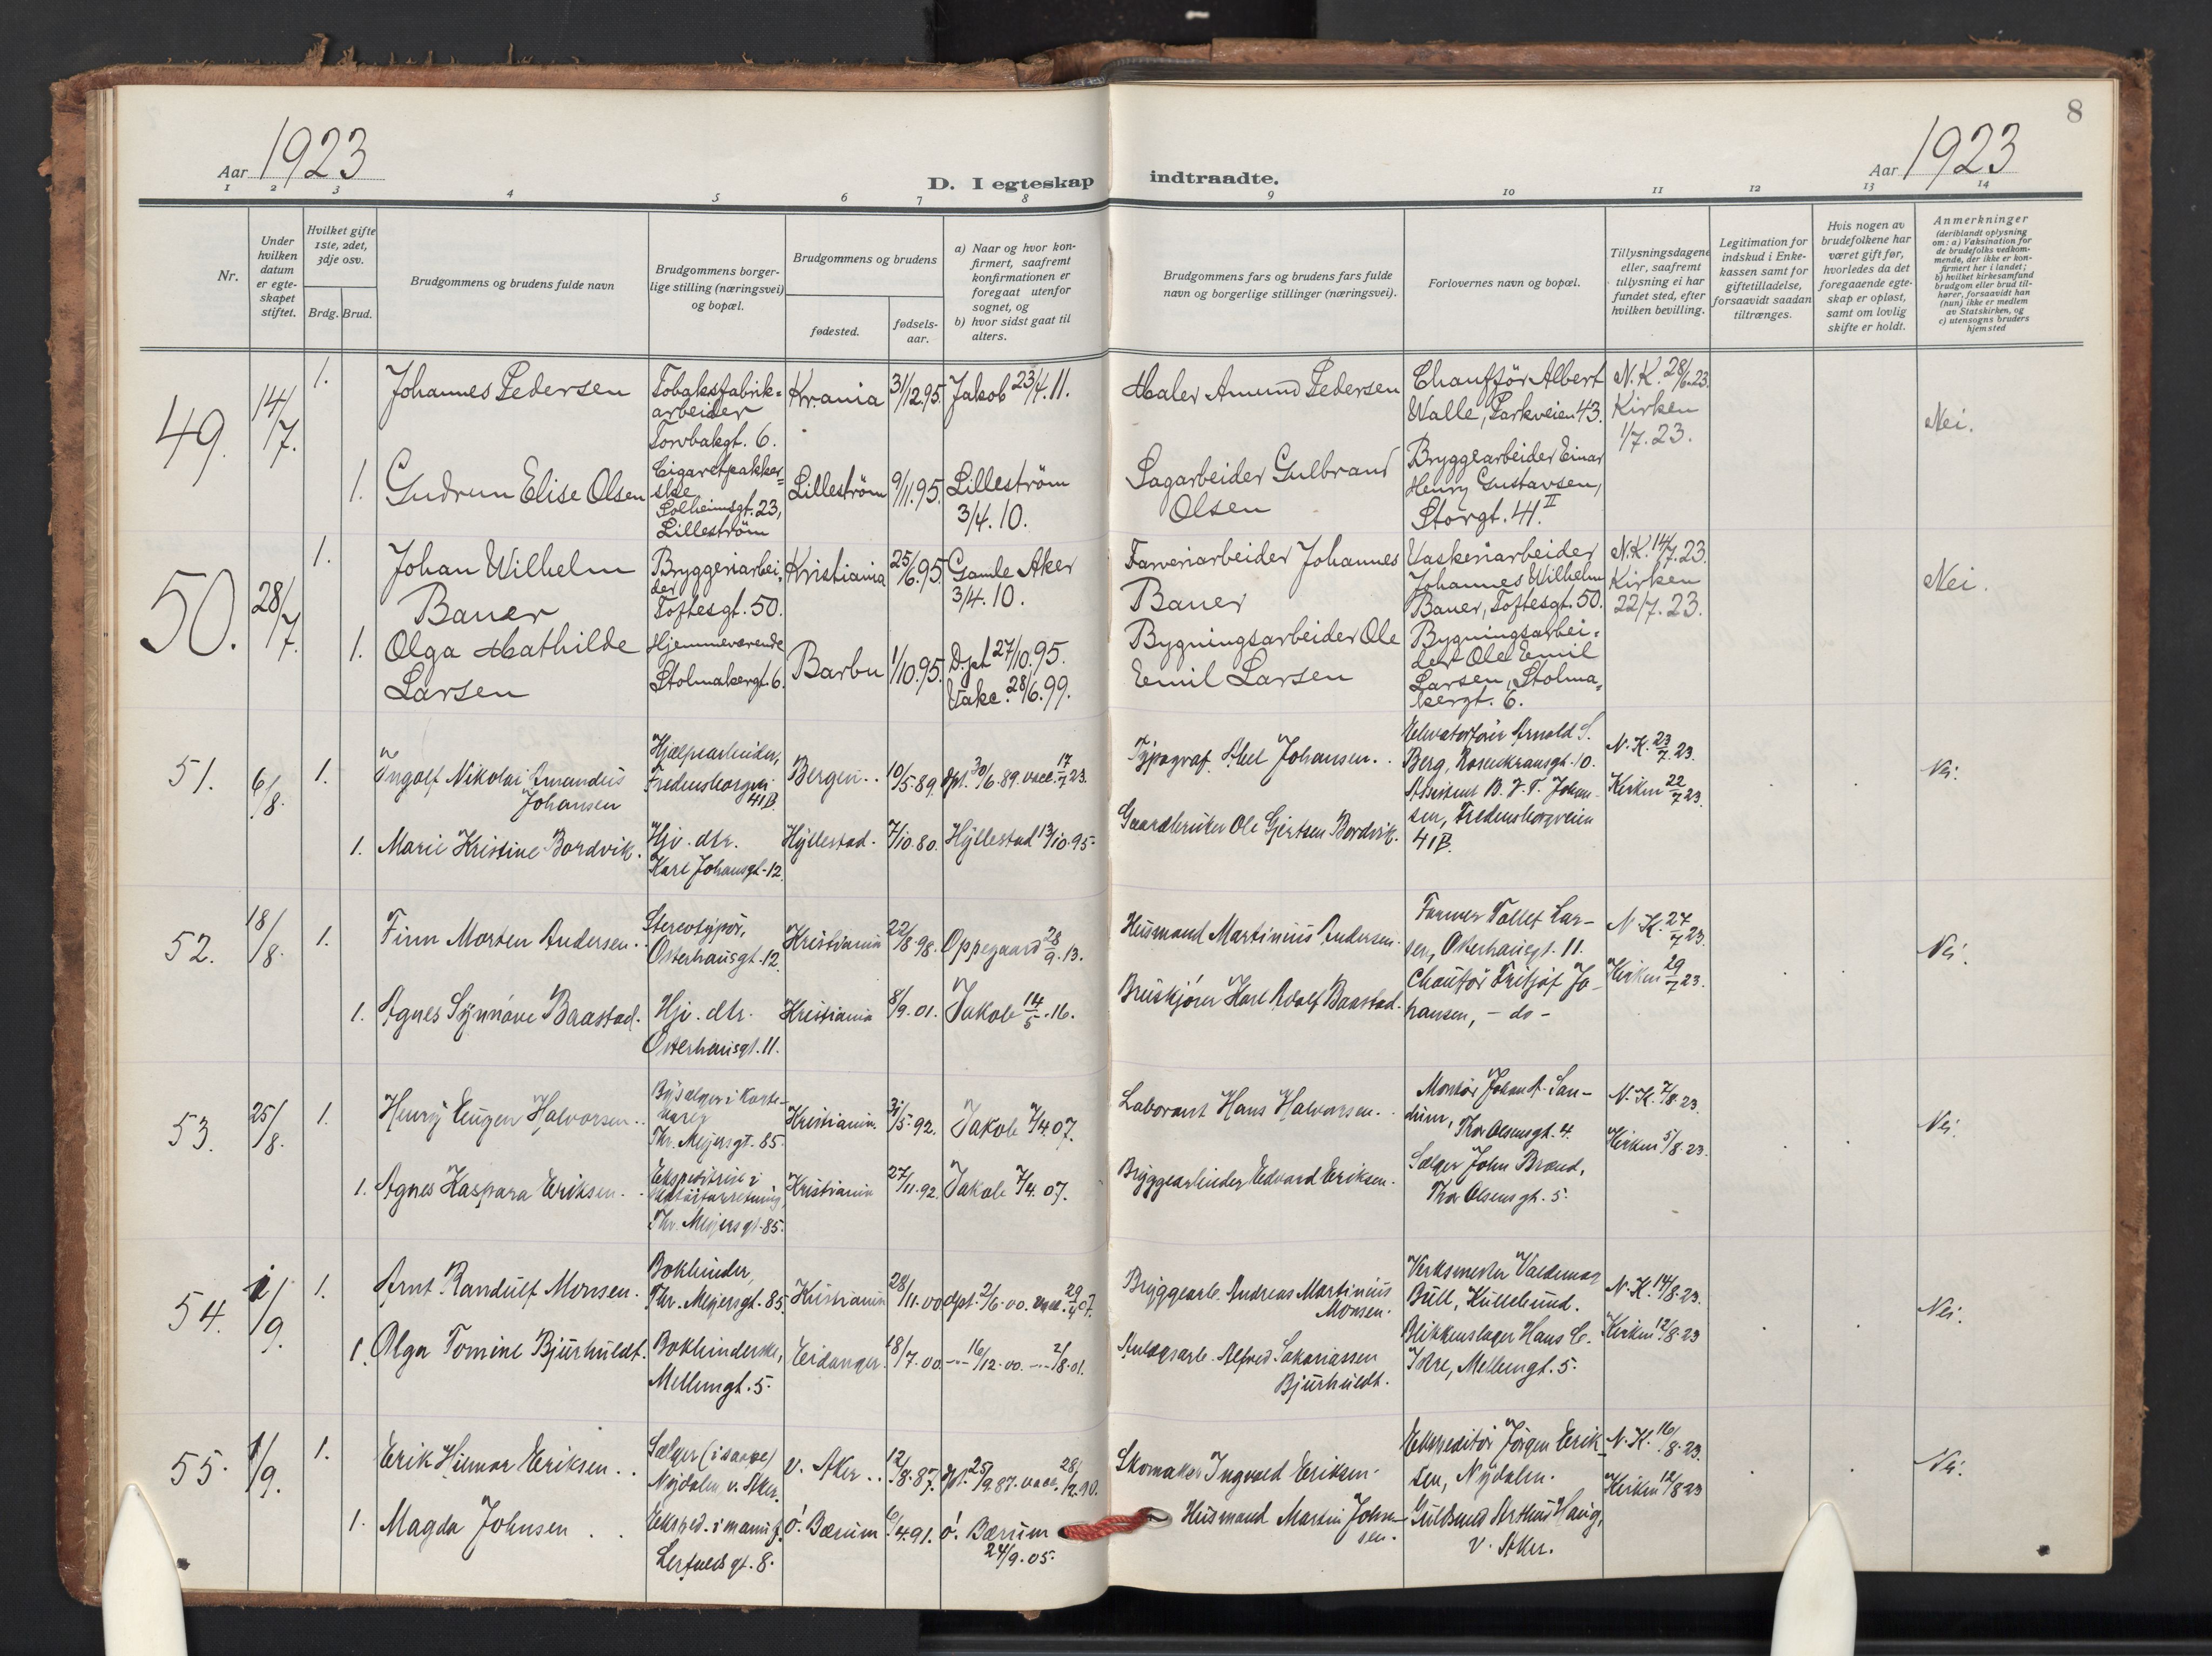 8
Aar 1923
D. I egteskap indtraadte.
Aar 1923
1 2 3 4 5 6 7 8 9 10 11 12 13 14
Nr.
Under hvilken datum er egteskapet stiftet.
Hvilket gifte 1ste, 2det, 3dje osv.
Brdg. Brud.
Brudgommens og brudens fulde navn
Brudgommens borgerlige stilling (næringsvei) og bopæl.
Brudgommens og brudens
fødested.
fødselsaar.
a) Naar og hvor konfirmert, saafremt konfirmationen er foregaat utenfor sognet, og
b) hvor sidst gaat til alters.
Brudgommens fars og brudens fars fulde navn og borgerlige stillinger (næringsvei).
Forlovernes navn og bopæl.
Tillysningsdagene eller, saafremt tillysning ei har fundet sted, efter hvilken bevilling.
Legitimation for indskud i Enkekassen samt for giftetilladelse, forsaavidt saadan tiltrænges.
Hvis nogen av brudefolkene har været gift før, hvorledes da det foregaaende egteskap er opløst, samt om lovlig skifte er holdt.
Anmerkninger
(deriblandt oplysning om: a) Vaksination for de brudefolks vedkommende, der ikke er konfirmert her i landet; b) hvilket kirkesamfund brudgom eller brud tilhører, forsaavidt han (hun) ikke er medlem av Statskirken, og c) utensogns bruders hjemsted
49. 14/7.
1. Johannes Pedersen
Tobaksfabrik=
arbeider
Torvbakgt. 6.
Kr.ania 31/12.95. Jakob 23/4.11.
Maler Amund Pedersen
Chaufför Albert
Walle, Parkveien 43.
N.K. 28/6.23.
Kirken
1/7.23.
Nei.
1. Gudrun Elise Olsen
Cigaretpakker=
ske
Solheimsgt. 23,
Lilleström
Lilleström 9/11.95. Lilleström
3/4.10.
Sagarbeider Gulbrand
Olsen
Bryggearbeider Einar
Henry Gustavsen,
Storgt. 41 II.
50. 28/7.
1. Johan Wilhelm
Bauer
Bryggeriarbei=
der
Toftesgt. 50.
Kristiania 25/6.95. Gamle Aker
3/4.10.
Farveriarbeider Johannes
Bauer
Vaskeriarbeider
Johannes Wilhelm
Bauer, Toftesgt. 50.
N.K. 14/7.23.
Kirken
22/7.23.
Nei.
1. Olga Mathilde
Larsen
Hjemmeværende
Stolmakergt. 6.
Barbu 1/10.95. Dpt 27/10.95.
Vake. 28/6.99.
Bygningsarbeider Ole
Emil Larsen
Bygningsarbei=
der Ole Emil
Larsen, Stolma=
kergt. 6.
51. 6/8.
1. Ingolf Nikolai Amandus
Johansen
Hjælpearbeider,
Fredensborgvn
41B.
Bergen. 10/5.89. dpt. 30/6.89. vacc. 17/7.23.
Typograf Abel Johansen.
Elevatorfører Arnold S.
Berg, Rosenkransgt. 10.
N.K. 23/7.23.
Nei.
1. Marie Kristine Bordvik.
Hjv. dtr.
Karl Johansgt. 12
Hyllestad. 7/10.80. Hyllestad 13/10.95.
Gaardbruker Ole Gjertsen Bordvik.
Assistent B. J. T. Johan-
sen, Fredensborgveien
41B.
Kirken 22/7.23.
52. 18/8.
1. Finn Morten Andersen.
Stereotypør,
Osterhausgt. 12.
Kristiania 22/8.98. Oppegaard 28/9.13.
Husmand Martinius Andersen.
Farmer Tollef Lar-
sen, Osterhausgt. 11.
N.K. 24/7.23.
Nei.
1. Agnes Synnøve Baastad.
Hjv. dtr.
Osterhausgt. 11.
Kristiania 8/9.01. Jakob 14/5.16.
Bruskjører Karl Adolf Baastad.
Chauffør Fritjof Jo-
hansen, - do -
Kirken 29/7.23.
53. 25/8.
1. Henry Eugen Halvorsen.
Bysælger i korte-
varer
Thv. Meyersgt. 85.
Kristiania. 31/5.92. Jakob 7/4.07.
Laborant Hans Halvorsen.
Montør Johan A. San-
dum, Thor Olsensgt. 4.
N.K. 7/8.23.
Nei.
1. Agnes Kaspara Eriksen.
Ekspeditrise i
Thv. Meyersgt. 85.
Kristiania 27/11.92. Jakob 7/4.07.
Bryggearbeider Edvard Eriksen.
Sælger John Brænd,
Thor Olsensgt. 5.
Kirken 5/8.23.
54. 1/9.
1. Arnt Randulf Monsen.
Bokbinder,
Thv. Meyersgt. 85.
Kristiania 28/11.00 dpt. 2/6.00. vacc. 29/4.07.
Bryggearb. Andreas Martinius
Monsen.
Verksmester Valdemar
Bull, Kullebund.
N.K. 14/8.23.
Nei.
1. Olga Tomine Bjurhuldt.
Bokbinderske,
Mellemgt. 5.
Eidanger. 18/7.00. -"- 16/12.00. -"- 2/8.01.
Anlægsarb. Alfred Sakariassen
Bjurhuldt.
Blikkenslager Hans C.
Idre, Mellemgt. 5.
Kirken 12/8.23
55. 1/9.
1. Erik Hilmar Eriksen.
Sælger
Nydalen v. Aker.
V. Aker. 12/8.87. dpt. 25/9.87. vacc. 28/12.90.
Skomaker Ingvald Eriksen.
Ekspeditør Jørgen Erik-
sen, Nydalen.
N.K. 16/8.23.
Nei.
1. Magda Johnsen
Eksped. i manuf.
Lerfaldsgt. 8.
Ø. Bærum 6/4.91. Ø. Bærum
24/9.05.
Husmand Martin John-
sen.
Guldsmed Arthur Haug,
V. Aker.
Kirken 12/8.23